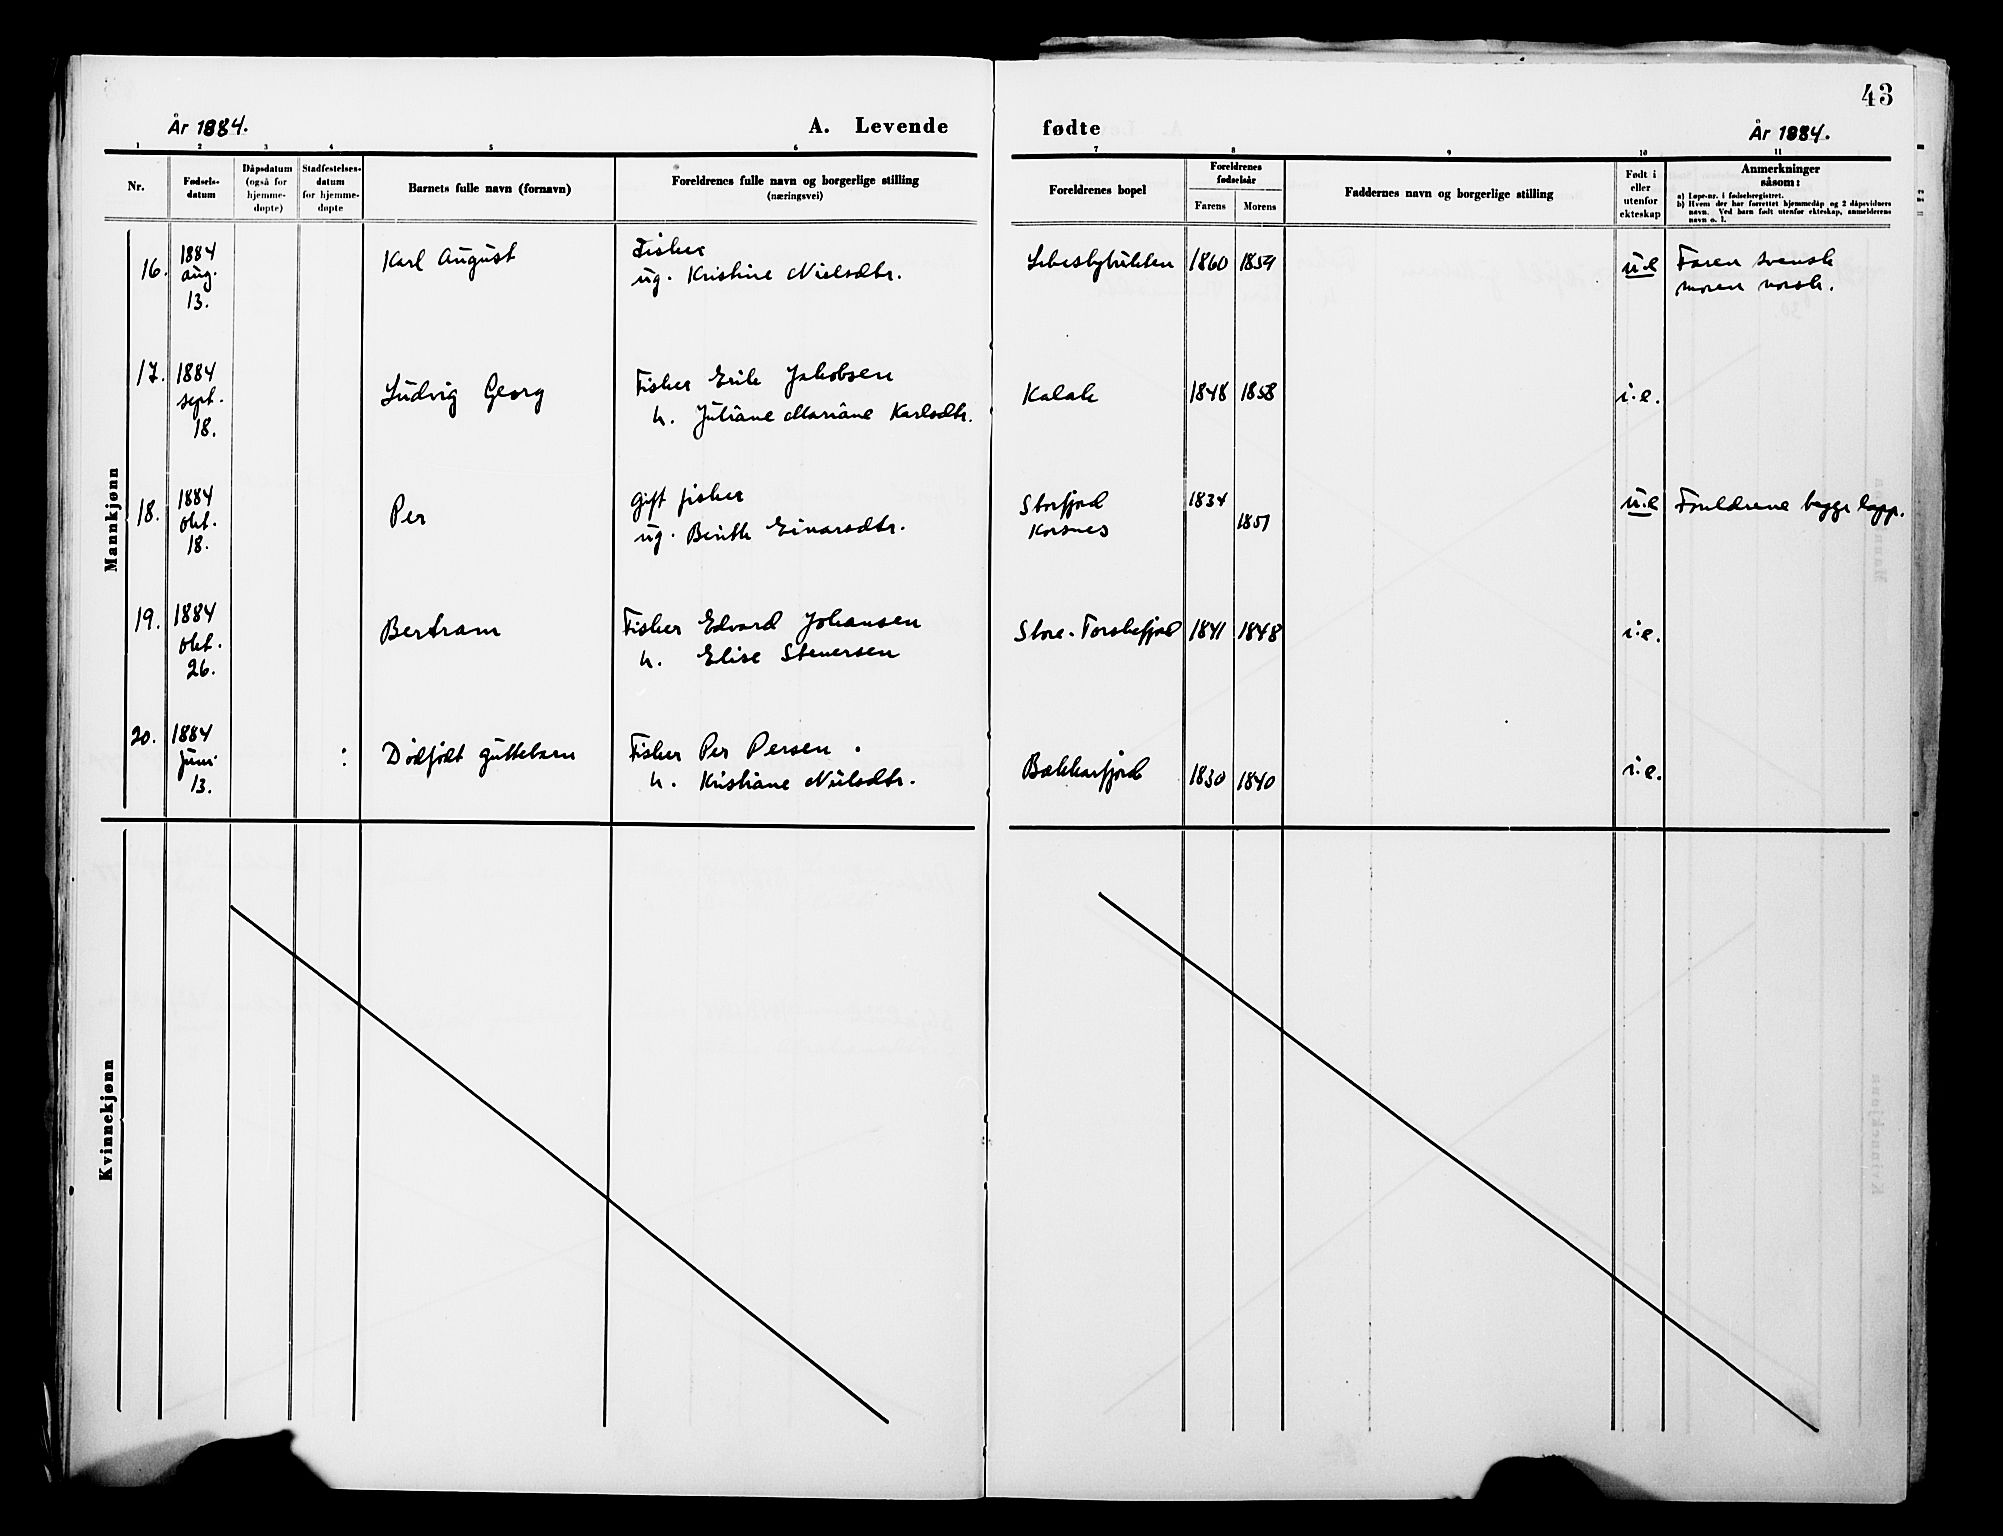 43
År 1884.
A. Levende
fødte
År 1884.
1 2 3 4 5 6 7 8 9 10 11
Nr.
Fødsels-
datum
Dåpsdatum
(også for
hjemme-
døpte)
Stadfestelses-
datum
for hjemme-
døpte
Barnets fulle navn (fornavn)
Foreldrenes fulle navn og borgerlige stilling
(næringsvei)
Foreldrenes bopel
Foreldrenes
fødselsår
Farens
Morens
Faddernes navn og borgerlige stilling
Født i
eller
utenfor
ekteskap
Anmerkninger
såsom:
a) Løpe-nr. i fødselsregistret.
b) Hvem der har forrettet hjemmedåp og 2 dåpsvidners
navn. Ved barn født utenfor ekteskap, anmelderens
navn o. l.
Mannkjønn
16.
1884
aug.
13.
Karl August
Fisker
ug. Kristine Nielsdtr.
Lebesbybukten
1860
1859
u.e
Faren svensk
moren norsk.
17.
1884
sept.
18.
Ludvig Georg
Fisker Erik Jakobsen
h. Juliane Mariane Karlsdtr.
Kalak
1848
1858
i.e.
18.
1884
okt.
18.
Per
gift fisker
ug. Berith Einarsdtr.
Storfjord
Korsnes
1834
1851
u.e
Foreldrene begge lapp.
19.
1884
okt.
26.
Bertram
Fisker Edvard Johansen
h. Elise Stenersen
Store-Torskefjord
1841
1848
i.e.
20.
1884
Juni
13.
Dødfødt guttebarn
Fisker Per Persen
h. Kristiane Nielsdtr.
Bekkarfjord
1830
1840
i.e.
Kvinnekjønn